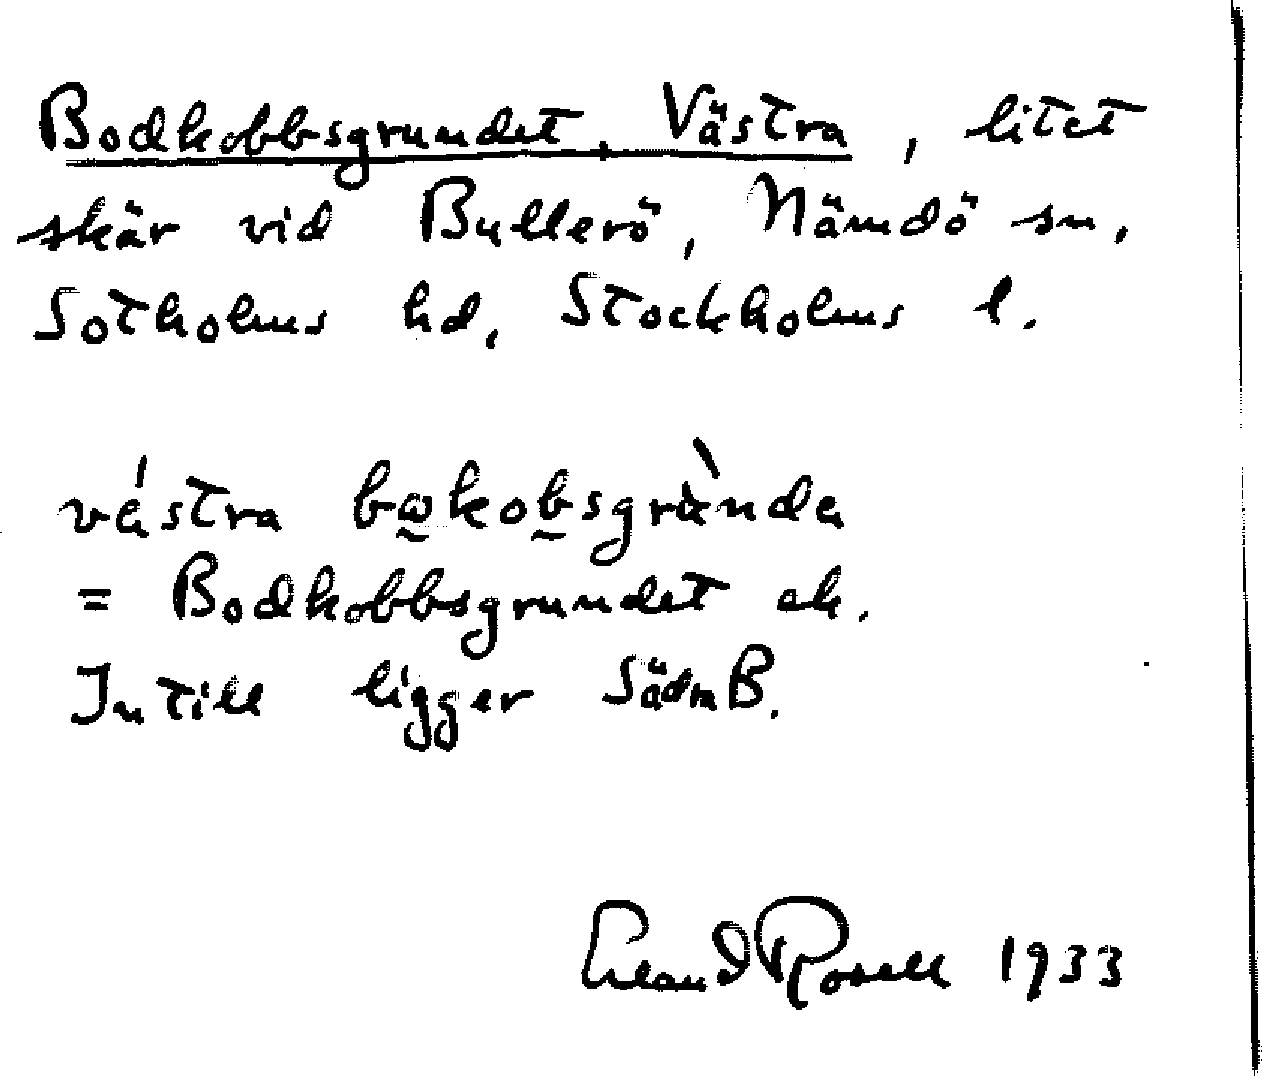 Bodkobbsgrundet, Västra, litet
skär vid Bullerö, Nämdö sn,
Sotholms hd, Stockholms l.
vástra bωkobsgrùnda
= Bodkobbsgrundet ek.
Intill ligger Södra B.
Erland Rosell 1933